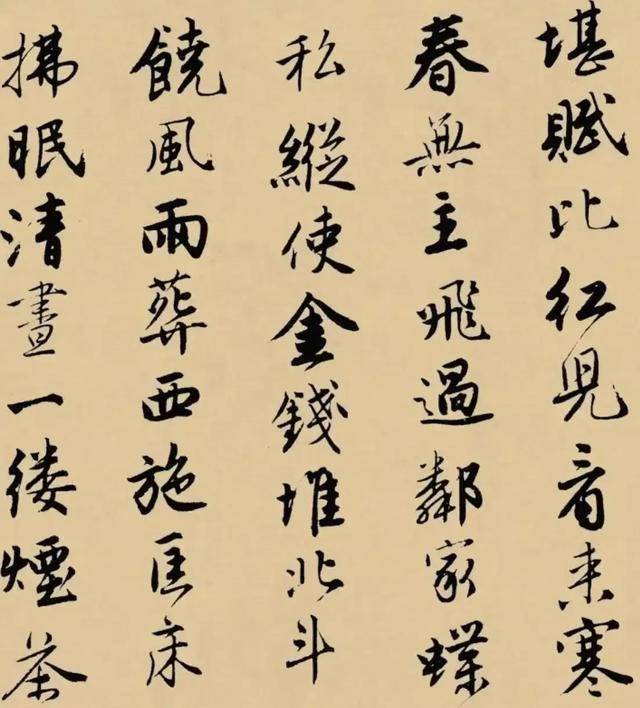 堪賦比紅兒看来寒
春無主飛過鄰家蝶
私縱使金錢堆北斗
饒風雨葬西施匡床
拂眠清晝一縷煙茶